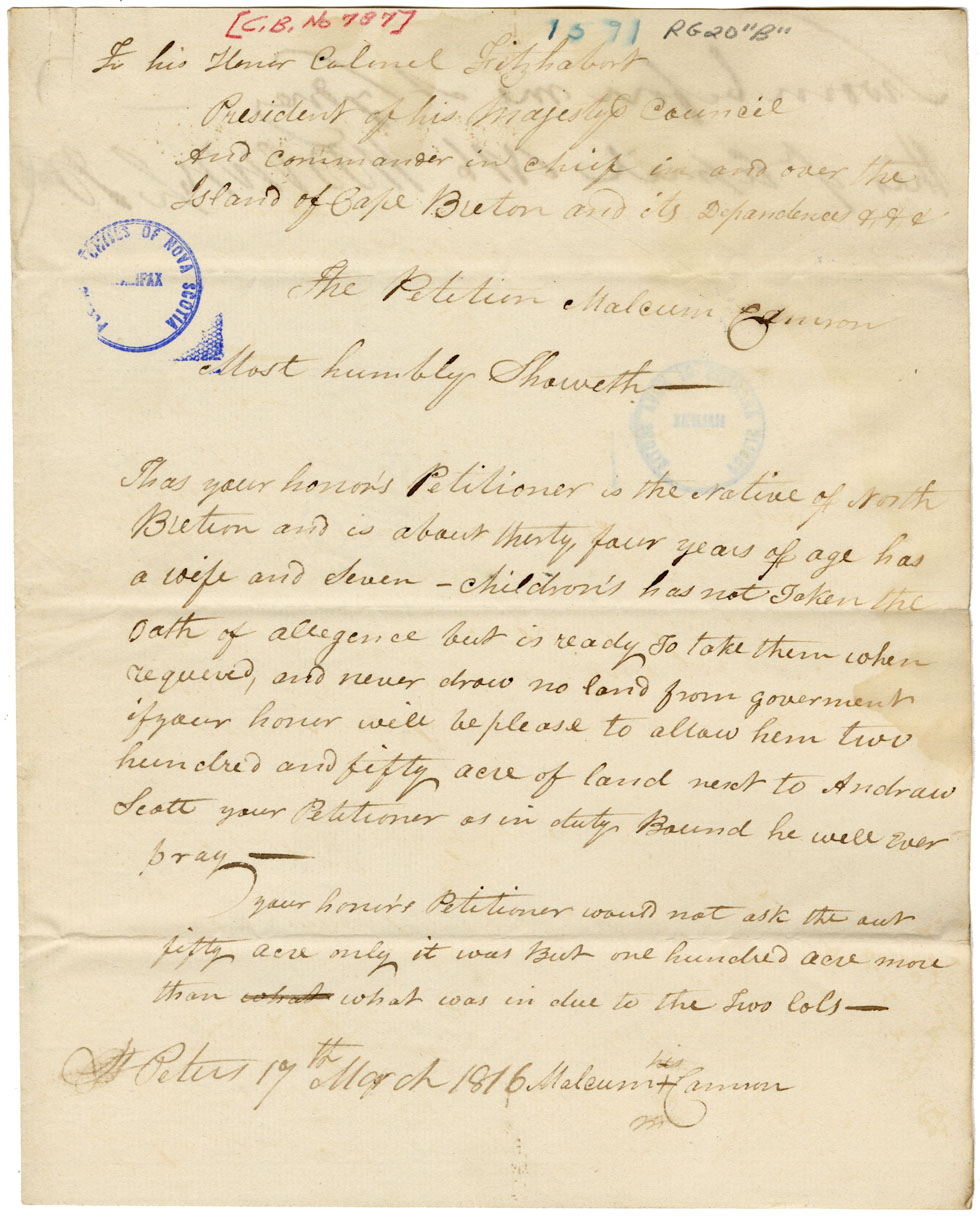 [C.B. No 787]
1591
RG20 "B"
To his Honor Colonel Fitzhabort
President of his Majestys Council
And commander in chief in and over the
Island of Cape Breton and its Dependences &,&,&
PUBLIC ARCHIVES OF NOVA SCOTIA
HALIFAX
The Petition Malcum Camron
Most humbly Showeth —
Thas your honor's Petitioner is the Native of North
Brietion and is about thirty, four years of age has
a wife and Seven - children's has not Taken the
Oath of allegence but is ready To take them when
requeved, and never draw no land from goverment
if your honor will be please to allow hem two
hundred and fifty acre of land next to Andraw
Scott your Petitioner as in duty Bound he well ever
pray —
your honor's Petitioner would not ask the out
fifty acre only it was But one hundred acre more
than what what was in due to the Two lots —
St Peters 17th March 1816 Malcum his + Camron
m